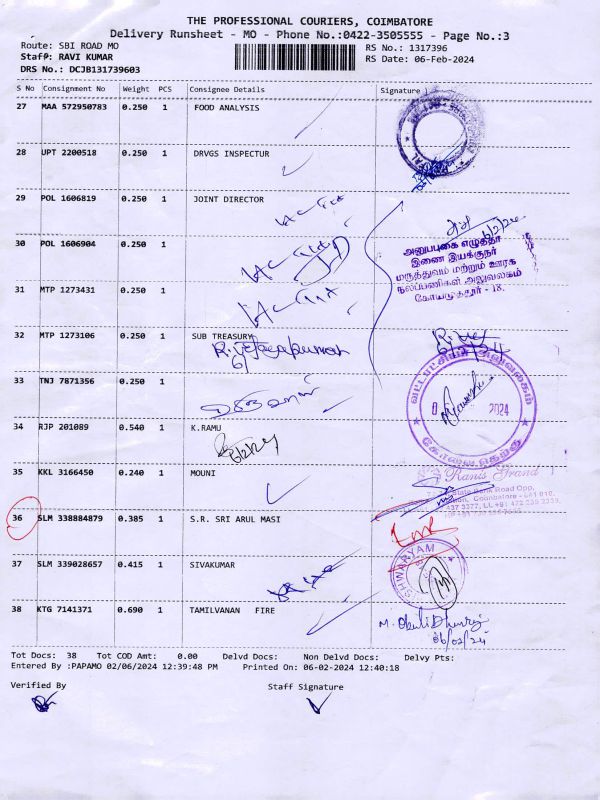 THE PROFESSIONAL COURIERS, COIMBATORE
Delivery Runsheet - MO - Phone No.:0422-3505555 - Page No.:3
Route: SBI ROAD MO
RS No.: 1317396
Staff: RAVI KUMAR
RS Date: 06-Feb-2024
DRS No.: DCJB131739603
S No Consignment No Weight PCS Consignee Details Signature
27 MAA 572950783 0.250 1 FOOD ANALYSIS
28 UPT 2200518 0.250 1 DRVGS INSPECTUR
29 POL 1606819 0.250 1 JOINT DIRECTOR
6/2/24
30 POL 1606904 0.250 1
அனுப்புகை எழுத்தர்
இணை இயக்குநர்
மருத்துவம் மற்றும் ஊரக
நலப்பணிகள் அலுவலகம்
கோயமுத்தூர் - 18.
31 MTP 1273431 0.250 1
32 MTP 1273106 0.250 1 SUB TREASURY
6/2/24
33 TNJ 7871356 0.250 1
2024
34 RJP 201089 0.540 1 K.RAMU
35 KKL 3166450 0.240 1 MOUNI
Ranis Grand
State Bank Road Opp,
Coimbatore - 641 018.
36 SLM 338884879 0.385 1 S.R. SRI ARUL MASI
37 SLM 339028657 0.415 1 SIVAKUMAR
38 KTG 7141371 0.690 1 TAMILVANAN FIRE
06/02/24
Tot Docs: 38 Tot COD Amt: 0.00 Delvd Docs: Non Delvd Docs: Delvy Pts:
Entered By :PAPAMO 02/06/2024 12:39:48 PM Printed On: 06-02-2024 12:40:18
Verified By Staff Signature